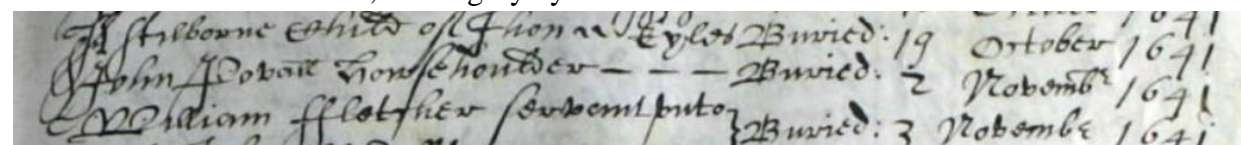 A stilborne Child of Thomas Eyles Buried: 19 October 1641
John Powell Howsehoulder - - - Buried: 2 Novembr 1641
William ffletcher servant unto } Buried: 3 Novembr 1641